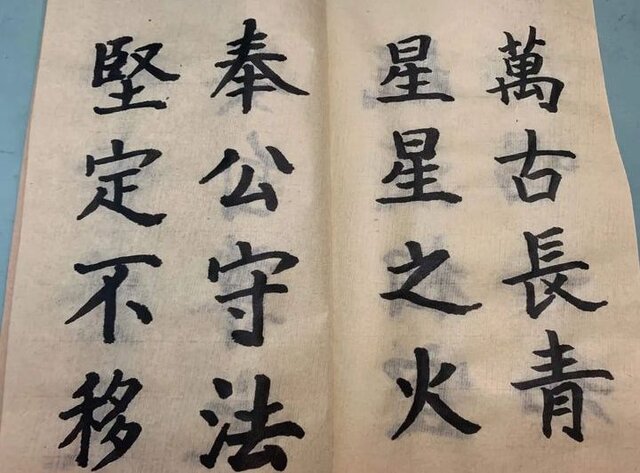 萬古長青
星星之火
奉公守法
堅定不移